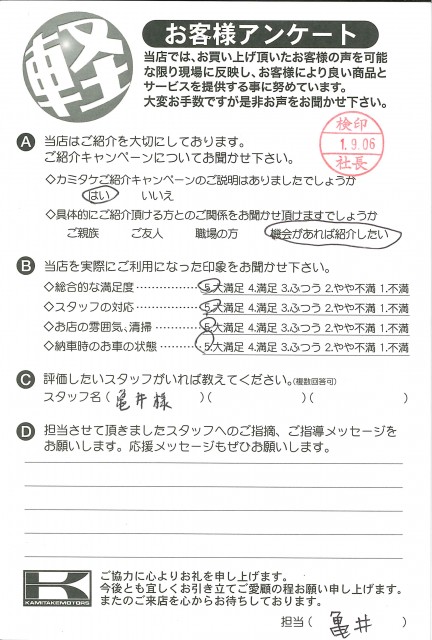 軽
お客様アンケート
当店では、お買い上げ頂いたお客様の声を可能
な限り現場に反映し、お客様により良い商品と
サービスを提供する事に努めています。
大変お手数ですが是非お声をお聞かせ下さい。
検印
1.9.06
社長
A 当店はご紹介を大切にしております。
ご紹介キャンペーンについてお聞かせ下さい。
◇カミタケご紹介キャンペーンのご説明はありましたでしょうか
はい いいえ
◇具体的にご紹介頂ける方とのご関係をお聞かせ頂けますでしょうか
ご親族 ご友人 職場の方 機会があれば紹介したい
B 当店を実際にご利用になった印象をお聞かせ下さい。
◇総合的な満足度 …………… 5.大満足 4.満足 3.ふつう 2.やや不満 1.不満
◇スタッフの対応 …………… 5.大満足 4.満足 3.ふつう 2.やや不満 1.不満
◇お店の雰囲気、清掃 ……… 5.大満足 4.満足 3.ふつう 2.やや不満 1.不満
◇納車時のお車の状態 ……… 5.大満足 4.満足 3.ふつう 2.やや不満 1.不満
C 評価したいスタッフがいれば教えてください。(複数回答可)
スタッフ名 ( 亀井様 )( )( )
D 担当させて頂きましたスタッフへのご指摘、ご指導メッセージを
お願いします。応援メッセージもぜひお願いします。
K
KAMITAKEMOTORS
ご協力に心よりお礼を申し上げます。
今後とも宜しくお引き立てご愛顧の程お願い申し上げます。
またのご来店を心からお待ちしております。
担当 ( 亀井 )